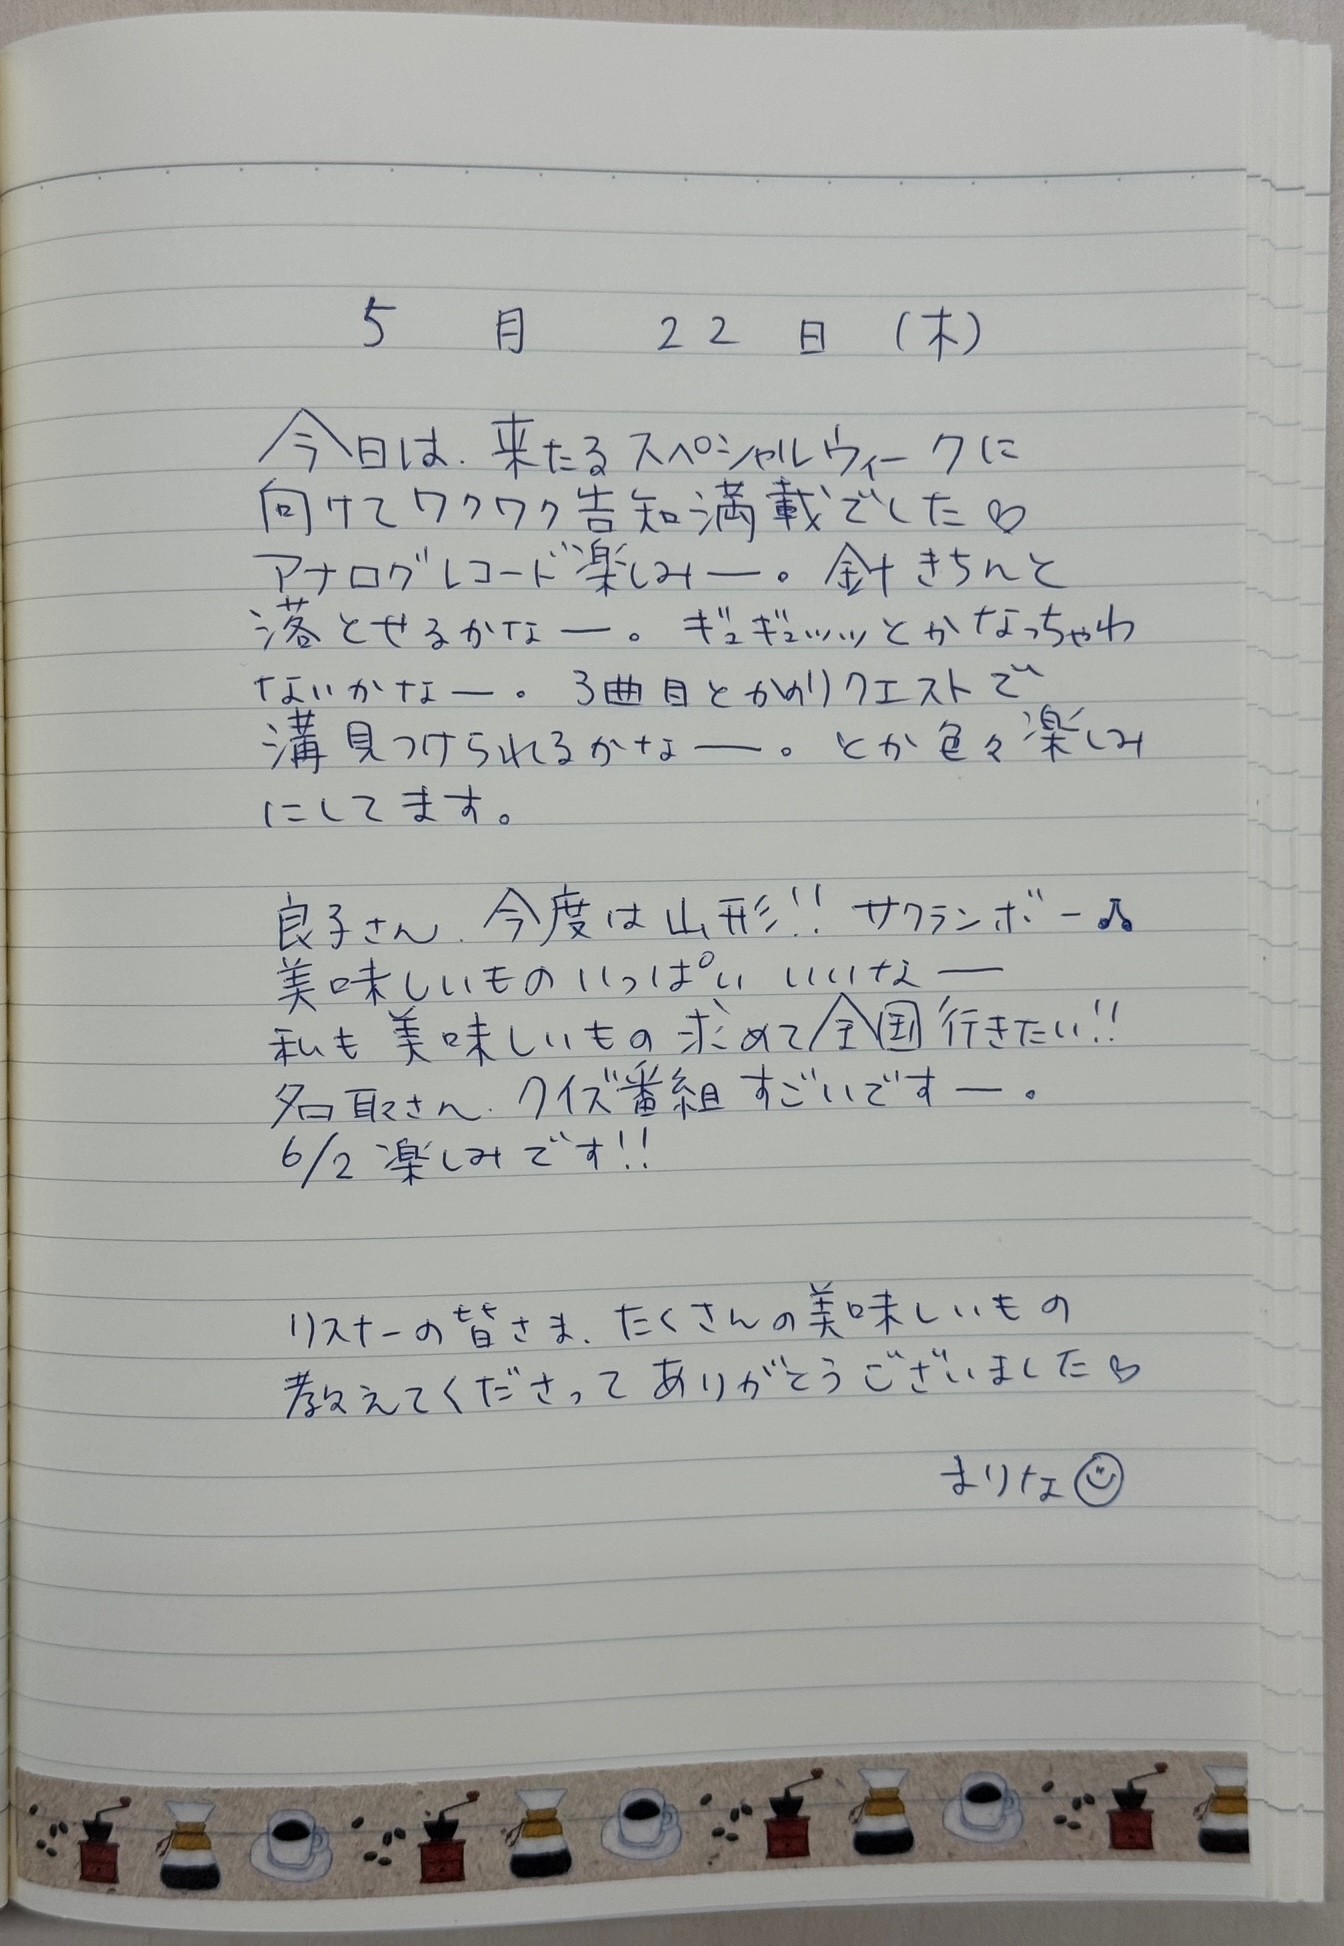 5月 22日 (木)
今日は、来たるスペシャルウィークに
向けてワクワク告知満載でした♡
アナログレコード楽しみー。針きちんと
落とせるかなー。ギュギュッッとかなっちゃわ
ないかなー。3曲目とかのリクエストで
溝見つけられるかなー。とか色々楽しみ
にしてます。
良子さん、今度は山形!! サクランボー🍒
美味しいものいっぱい いいなー
私も美味しいもの求めて全国行きたい!!
名取さん、クイズ番組すごいですー。
6/2 楽しみです!!
リスナーの皆さま、たくさんの美味しいもの
教えてくださってありがとうございました♡
まりな☺